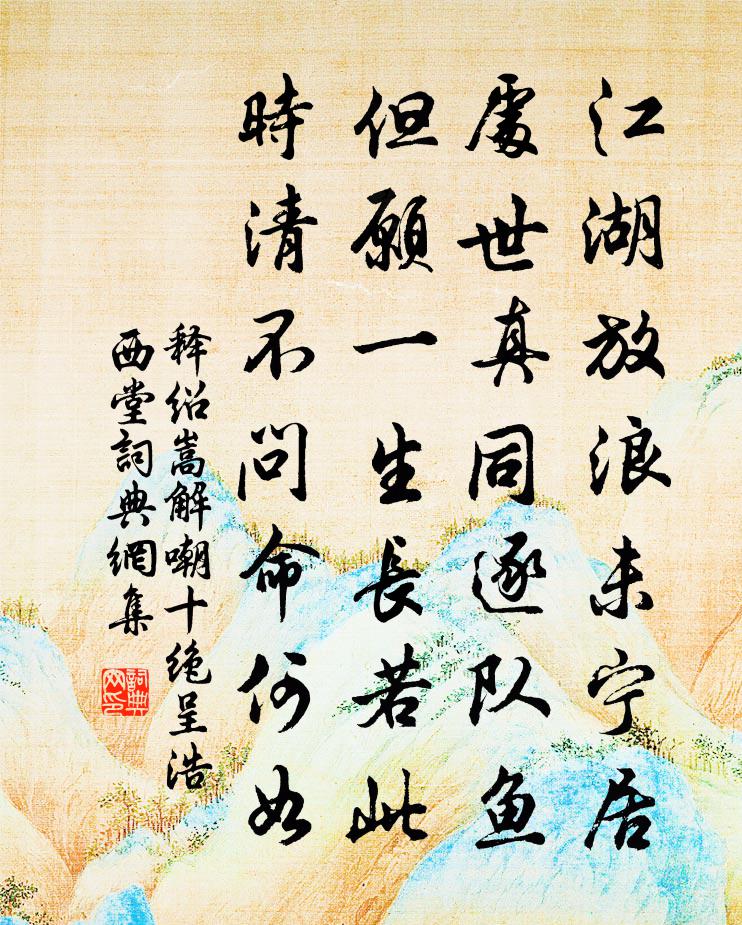 江湖放浪未宁居
處世真同逐队鱼
但願一生長若此
時清不問命何如
释绍嵩解嘲十绝呈浩
西堂詞典網集
詞典
网印